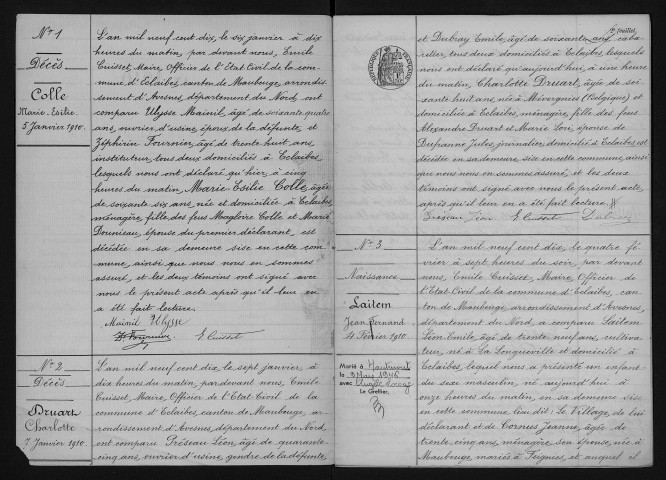 N° 1
Décès
Colle
Marie Esilie
5 Janvier 1910
L'an mil neuf cent dix, le six janvier à dix
heures du matin, par devant nous, Emile
Cuisset, Maire, Officier de l'Etat Civil de la com-
mune d'Eclaibes, canton de Maubeuge, arrondis-
sement d'Avesnes, département du Nord, ont
comparu Ulysse Mainil, âgé de soixante quatre
ans, ouvrier d'usine, époux de la défunte, et
Zéphirin Fournier, âgé de trente huit ans,
instituteur, tous deux domiciliés à Eclaibes,
lesquels nous ont déclaré qu'hier, à cinq
heures du matin, Marie Esilie Colle, âgée
de soixante six ans, née et domiciliée à Eclaibes,
ménagère, fille des feus Magloire Colle et Marie
Douniau, épouse du premier déclarant, est
décédée en sa demeure sise en cette com-
mune, ainsi que nous nous en sommes
assuré, et les deux témoins ont signé avec
nous le présent acte après qu'il leur en
a été fait lecture.
Mainil Ulysse
E Cuisset
N° 2
Décès
Druart
Charlotte
7 Janvier 1910
L'an mil neuf cent dix, le sept janvier, à
dix heures du matin, par devant nous, Emile
Cuisset, Maire, Officier de l'Etat-Civil de la
commune d'Eclaibes, canton de Maubeuge, arron-
dissement d'Avesnes, département du Nord,
ont comparu Préseau Léon, âgé de quarante
cinq ans, ouvrier d'usine, gendre de la défunte,
2e feuillet
et Dubray Emile, âgé de soixante ans, caba-
retier, tous deux domiciliés à Eclaibes, lesquels
nous ont déclaré qu'aujourd'hui, à une heure
du matin, Charlotte Druart, âgée de soi-
xante huit ans, née à Mévergnies (Belgique) et
domiciliée à Eclaibes, ménagère, fille des feus
Alexandre Druart et Marie Lori, épouse de
Dufranne Jules, journalier, domicilié à Eclaibes, est
décédée en sa demeure, sise en cette commune, ainsi
que nous nous en sommes assuré, et les deux
témoins ont signé avec nous le présent acte,
après qu'il leur en a été fait lecture.
Préseau Léon E Cuisset Dubray
N° 3
Naissance
Laitem
Jean Fernand
4 Février 1910
Marié à Hautmont
le 9 Mars 1946
avec
Le Greffier,
L'an mil neuf cent dix, le quatre fé-
vrier à sept heures du soir, par devant
nous, Emile Cuisset, Maire, Officier de
l'Etat-Civil de la commune d'Eclaibes, can-
ton de Maubeuge, arrondissement d'Avesnes,
département du Nord, a comparu Laitem
Léon Emile, âgé de trente neuf ans, cultiva-
teur, né à La Longueville et domicilié à
Eclaibes, lequel nous a présenté un enfant
du sexe masculin, né aujourd'hui à
onze heures du matin, en sa demeure sise
en cette commune lieu dit: Le Village, de lui
déclarant et de Cornus Jeanne, âgée de
trente cinq ans, ménagère, son épouse, née à
Maubeuge, mariés à Feignies, et auquel il